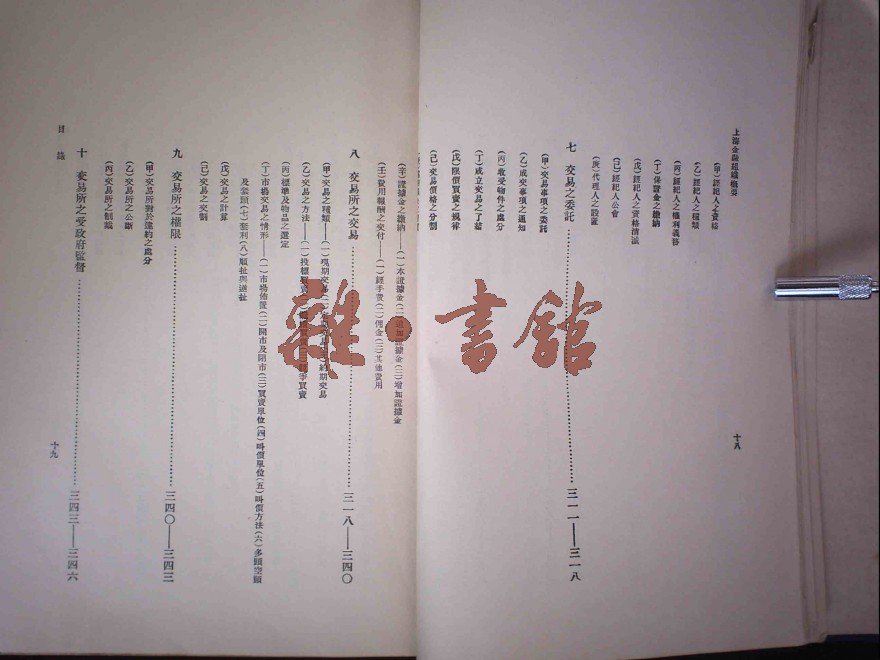 上海金融組織概要
十八
(甲)經紀人之資格
(乙)經紀人之種類
(丙)經紀人之權利義務
(丁)保證金之繳納
(戊)經紀人之資格消滅
(己)經紀人公會
(庚)代理人之設置
七 交易之委託……三一一——三一八
(甲)交易事項之委託
(乙)成交事項之通知
(丙)收受物件之處分
(丁)成立交易之了結
(戊)限價買賣之規律
(己)交易價格之分割
(辛)證據金之繳納——(一)本證據金(二)追加證據金(三)增加證據金
(壬)費用報酬之交付——(一)經手費(二)佣金(三)其他費用
八 交易所之交易……三一八——三四〇
(甲)交易之種類——(一)現期交易(二)約期交易
(乙)交易之方法——(一)投標買賣
(丙)標準及物品之選定
(丁)市場交易之情形——(一)市場佈置(二)開市及閉市(三)買賣單位(四)叫價單位(五)叫價方法(六)多頭空頭
及套頭(七)套利(八)順扯與逆扯
(戊)交易之計算
(己)交易之交割
九 交易所之權限……三四〇——三四三
(甲)交易所對於違約之處分
(乙)交易所之公斷
(丙)交易所之制裁
十 交易所之受政府監督……三四三——三四六
目錄
十九
雜·書館